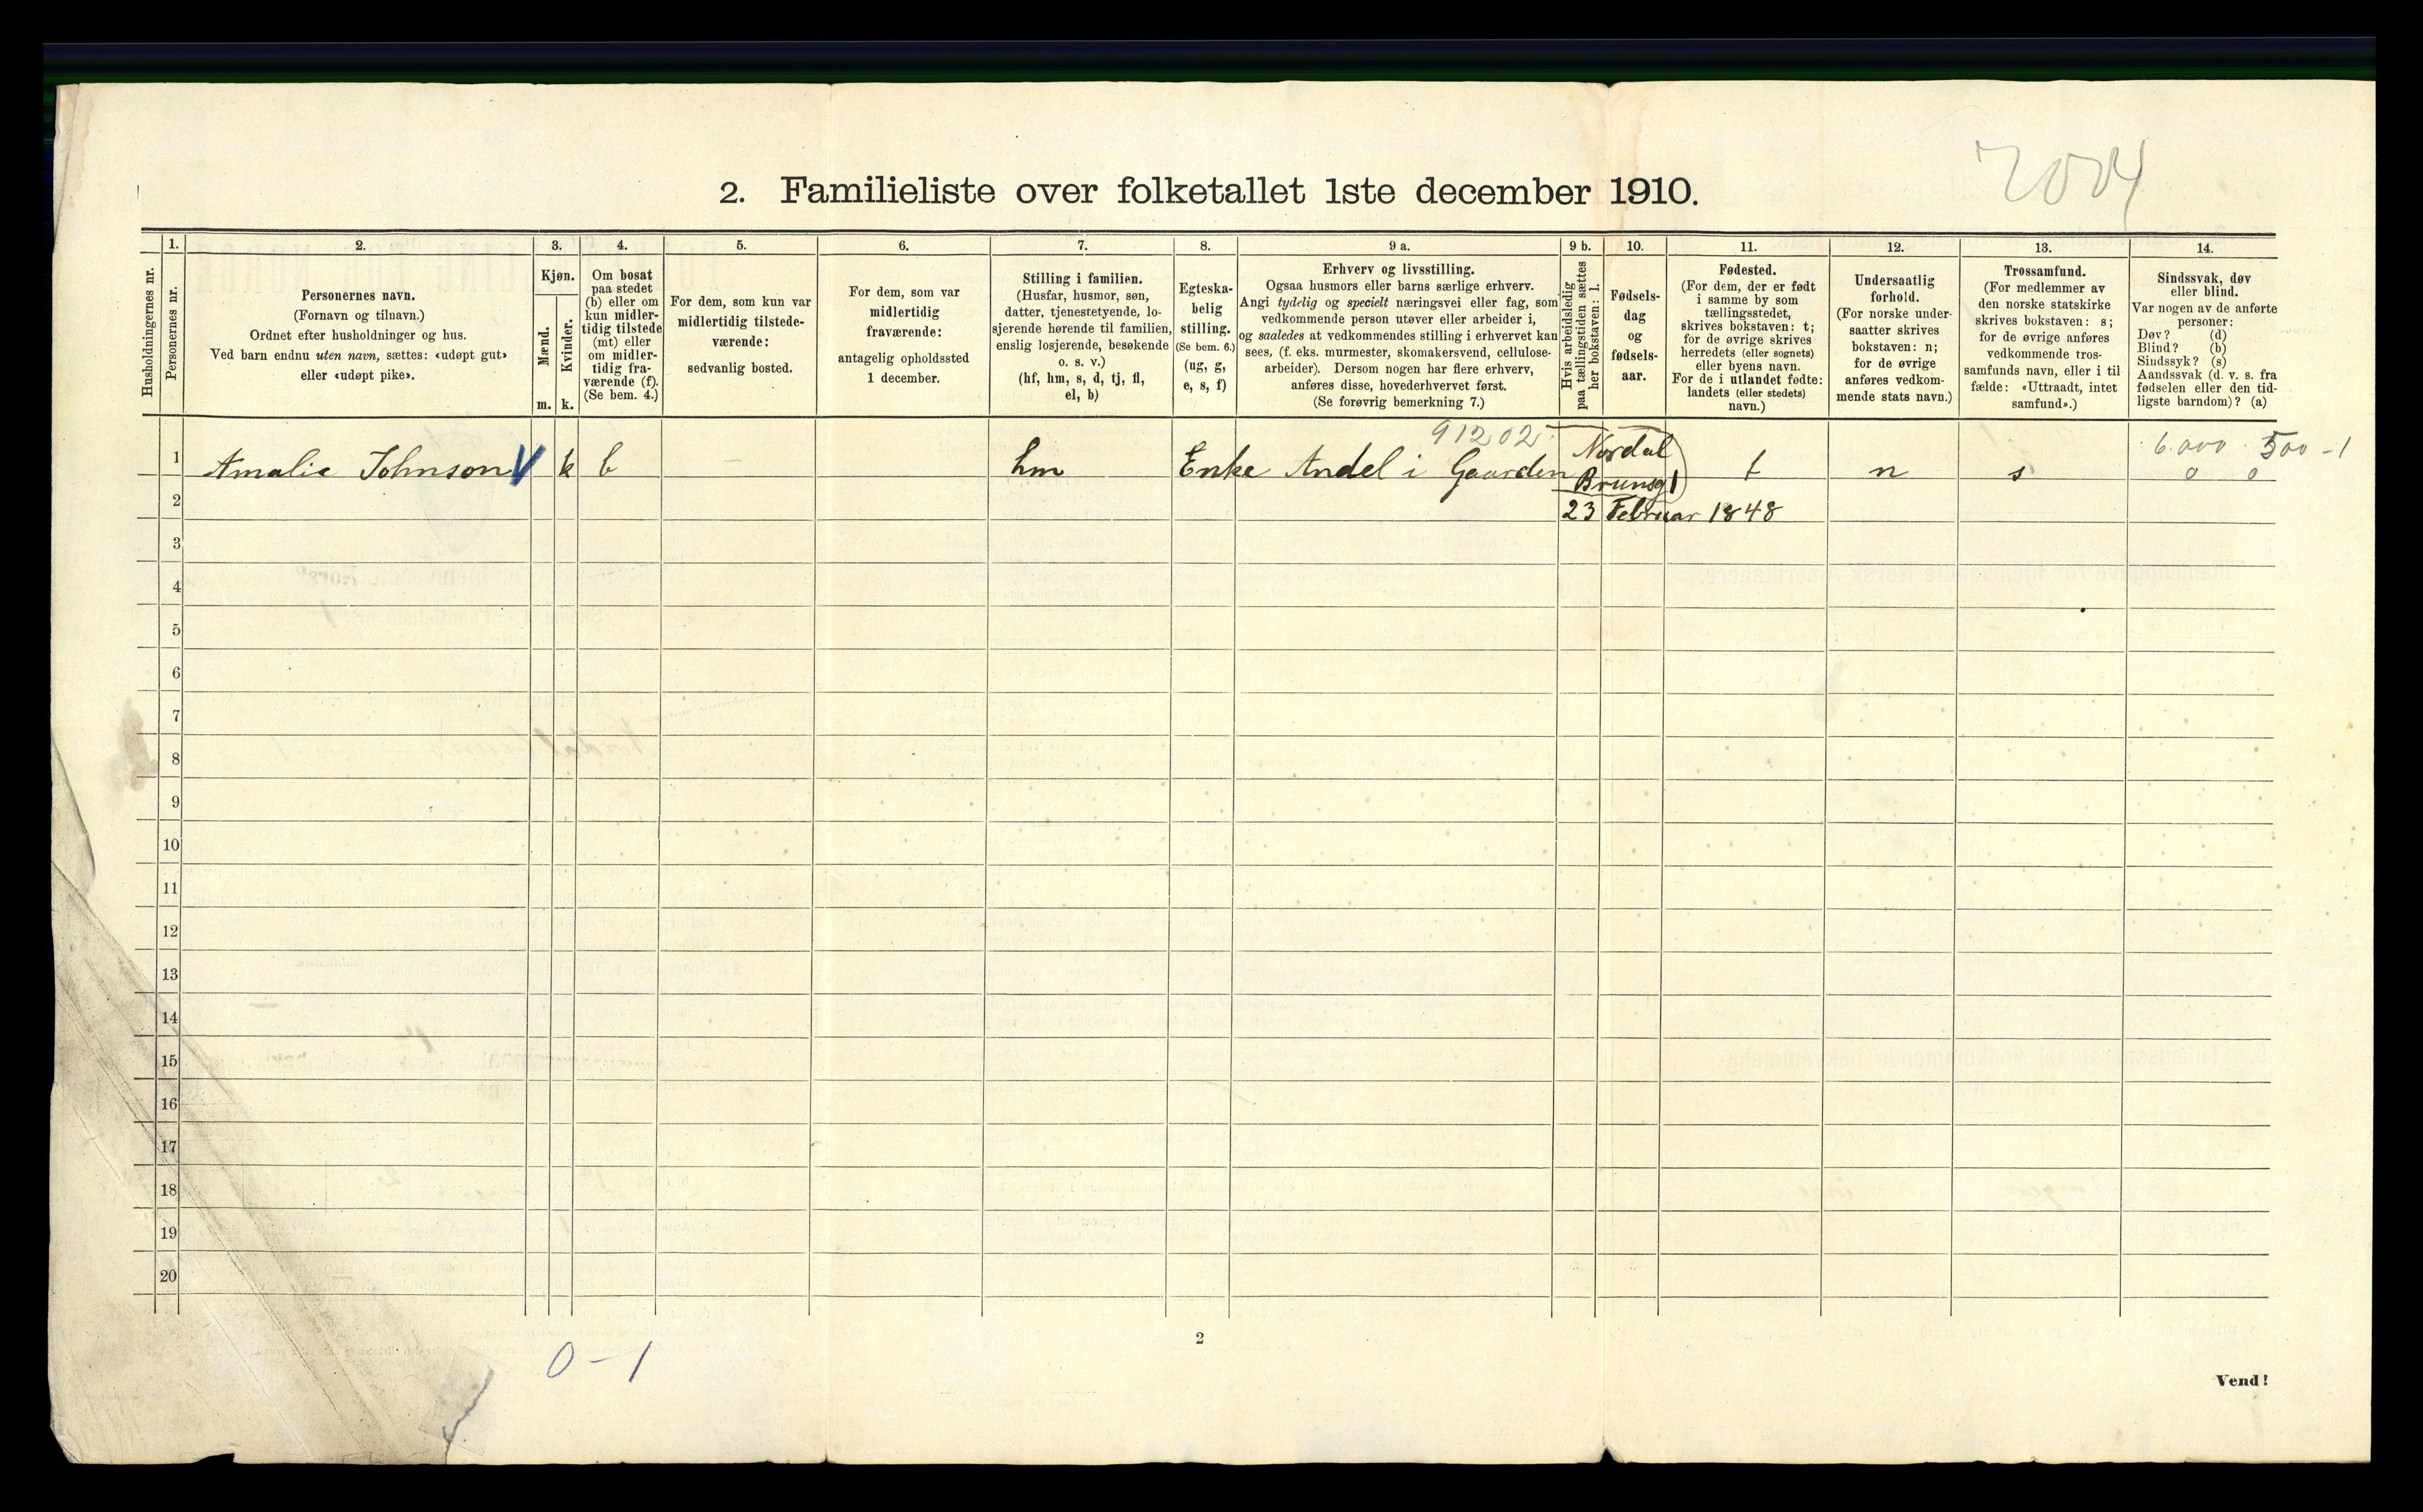 2004
2. Familieliste over folketallet 1ste december 1910.
Husholdningernes nr.
1.
Personernes nr.
2.
Personernes navn.
(Fornavn og tilnavn.)
Ordnet efter husholdninger og hus.
Ved barn endnu uten navn, sættes: «udøpt gut»
eller «udøpt pike».
3.
Kjøn.
Mænd.
m.
Kvinder.
k.
4.
Om bosat
paa stedet
(b) eller om
kun midler-
tidig tilstede
(mt) eller
om midler-
tidig fra-
værende (f).
(Se bem. 4.)
5.
For dem, som kun var
midlertidig tilstede-
værende:
sedvanlig bosted.
6.
For dem, som var
midlertidig
fraværende:
antagelig opholdssted
1 december.
7.
Stilling i familien.
(Husfar, husmor, søn,
datter, tjenestetyende, lo-
sjerende hørende til familien,
enslig losjerende, besøkende
o. s. v.)
(hf, hm, s, d, tj, fl,
el, b)
8.
Egteska-
belig
stilling.
(Se bem. 6.)
(ug, g,
e, s, f)
9 a.
Erhverv og livsstilling.
Ogsaa husmors eller barns særlige erhverv.
Angi tydelig og specielt næringsvei eller fag, som
vedkommende person utøver eller arbeider i,
og saaledes at vedkommendes stilling i erhvervet kan
sees, (f. eks. murmester, skomakersvend, cellulose-
arbeider). Dersom nogen har flere erhverv,
anføres disse, hovederhvervet først.
(Se forøvrig bemerkning 7.)
9 b.
Hvis arbeidsledig
paa tællingstiden sættes
her bokstaven: l.
10.
Fødsels-
dag
og
fødsels-
aar.
11.
Fødested.
(For dem, der er født
i samme by som
tællingsstedet,
skrives bokstaven: t;
for de øvrige skrives
herredets (eller sognets)
eller byens navn.
For de i utlandet fødte:
landets (eller stedets)
navn.)
12.
Undersaatlig
forhold.
(For norske under-
saatter skrives
bokstaven: n;
for de øvrige
anføres vedkom-
mende stats navn.)
13.
Trossamfund.
(For medlemmer av
den norske statskirke
skrives bokstaven: s;
for de øvrige anføres
vedkommende tros-
samfunds navn, eller i til-
fælde: «Uttraadt, intet
samfund».)
14.
Sindssvak, døv
eller blind.
Var nogen av de anførte
personer:
Døv? (d)
Blind? (b)
Sindssyk? (s)
Aandssvak (d. v. s. fra
fødselen eller den tid-
ligste barndom)? (a)
91202
Nordal
6.000 500 - 1
1 Amalie Johnson V k b – hm Enke Andel i Gaarden Brunsg 1 t n s 0 0
2 23 Februar 1848
3
4
5
6
7
8
9
10
11
12
13
14
15
16
17
18
19
20
2
0 - 1
Vend!